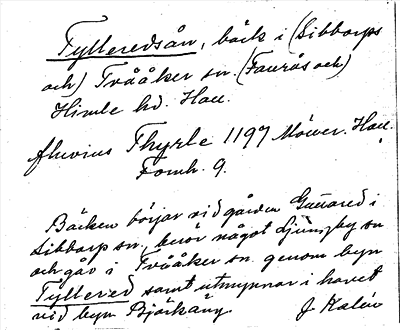 Tylleredsån, bäck i (Sibbarps
och) Tvååker sn. (Faurås och)
Himle hd. Hall.
fluvius Thyrle 1197 Möller. Hall.
Fornh. 9.
Bäcken börjar vid gården Gunnared i
Sibbarp sn, berör något Ljungby sn
och går i Tvååker sn. genom byn
Tyllered samt utmynnar i havet
vid byn Björkäng. J. Kalén